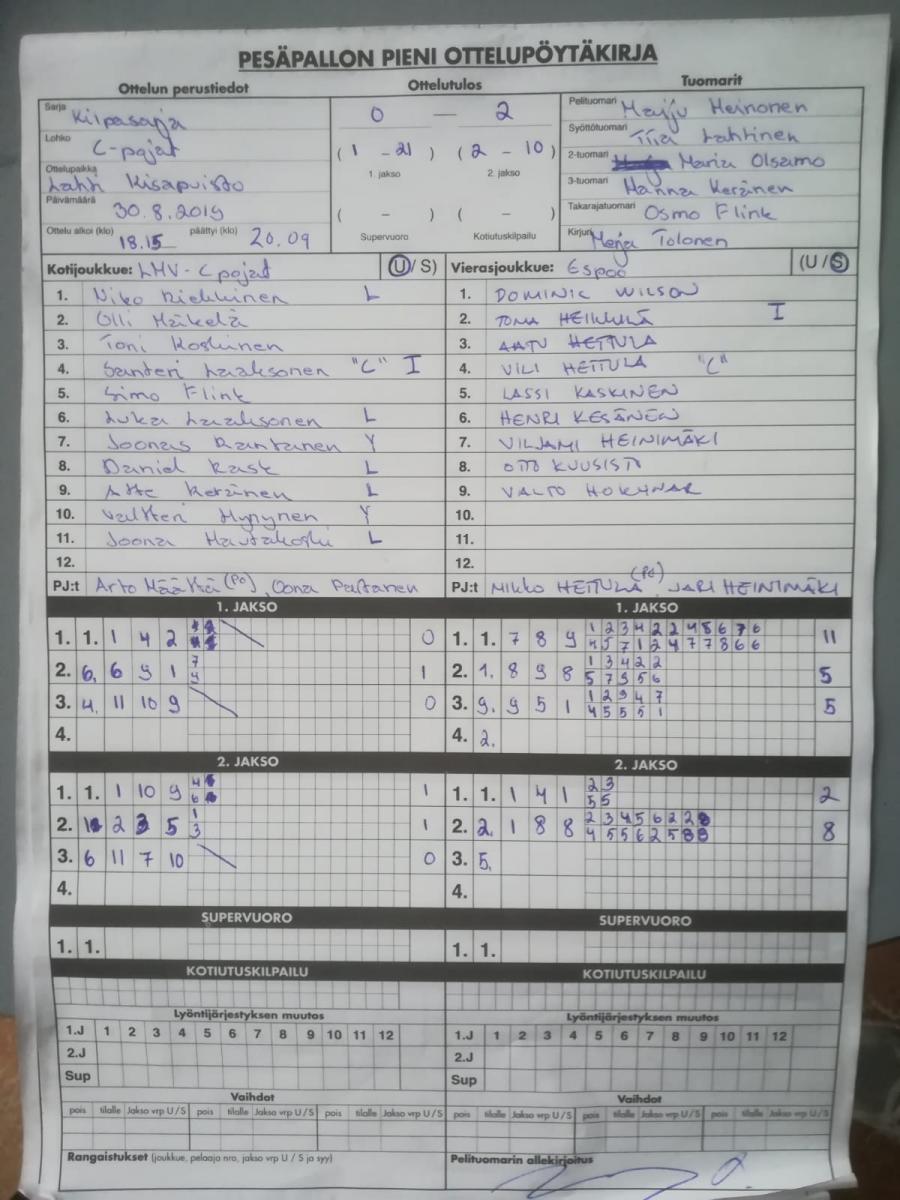 PESÄPALLON PIENI OTTELUPÖYTÄKIRJA
Ottelun perustiedot Ottelutulos Tuomarit
Sarja Kilpasarja 0 — 2 Pelituomari Marju Heinonen
Lohko C-pojat Syöttötuomari Tiia Lahtinen
Ottelupaikka Lahti Kisapuisto ( 1 - 21 ) ( 2 - 10 ) 2-tuomari Maria Olsamo
1. jakso 2. jakso 3-tuomari Hanna Keränen
Päivämäärä 30.8.2019 ( - ) ( - ) Takarajatuomari Osmo Flink
Ottelu alkoi (klo) 18.15 päättyi (klo) 20.09 Supervuoro Kotiutuskilpailu Kirjuri Merja Tolonen
Kotijoukkue: LMV - C pojat (U/S) Vierasjoukkue: Espoo (U/S)
1. Niko L 1. DOMINIC WILSON
2. Olli Mäkelä 2. HEIKKILÄ I
3. Toni Koskinen 3. AATU HEITULA
4. Santeri Laaksonen "C" I 4. VILI HEITULA "C"
5. Simo Flink 5. LASSI KASKINEN
6. Luka Laaksonen L 6. HENRI KESÄNEN
7. Joonas Rantanen Y 7. VILJAMI HEINIMÄKI
8. Daniel Rask L 8. OTTO KUUSISTO
9. Atte Keränen L 9. VALTO
10. Valtteri Hynynen Y 10.
11. Joona Hautakoski L 11.
12. 12.
PJ:t Arto Määttä (PO), Oona Paltanen PJ:t MIKKO HEITULA (PO), JARI HEINIMÄKI
1. JAKSO 1. JAKSO
1. 1. 1 4 2 0 1. 1. 7 8 9 1 2 3 4 2 2 4 5 6 7 6 11
4 5 7 1 2 4 7 7 8 6 6
2. 6. 6 9 1 7 1 2. 1. 8 9 8 1 3 4 2 2 5
9 5 7 3 5 6
3. 4. 11 10 9 0 3. 9. 9 5 1 1 2 3 4 7 5
4 5 5 5 1
4. 4. 2.
2. JAKSO 2. JAKSO
1. 1. 1 10 9 4 1 1. 1. 1 4 1 2 3 2
6 5 5
2. 2 3 5 1 1 2. 2. 1 8 8 2 3 4 5 6 2 2 8 8
3 4 5 5 6 2 5 8 8
3. 6 11 7 10 0 3. 5.
4. 4.
SUPERVUORO SUPERVUORO
1. 1. 1. 1.
KOTIUTUSKILPAILU KOTIUTUSKILPAILU
Lyöntijärjestyksen muutos Lyöntijärjestyksen muutos
1.J 1 2 3 4 5 6 7 8 9 10 11 12 1.J 1 2 3 4 5 6 7 8 9 10 11 12
2.J 2.J
Sup Sup
Vaihdot Vaihdot
pois tilalle Jakso vrp U/S pois tilalle Jakso vrp U/S pois tilalle Jakso vrp U/S pois tilalle Jakso vrp U/S pois tilalle Jakso vrp U/S pois tilalle Jakso vrp U/S
Rangaistukset (joukkue, pelaaja nro, jakso vrp U / S ja syy) Pelituomarin allekirjoitus